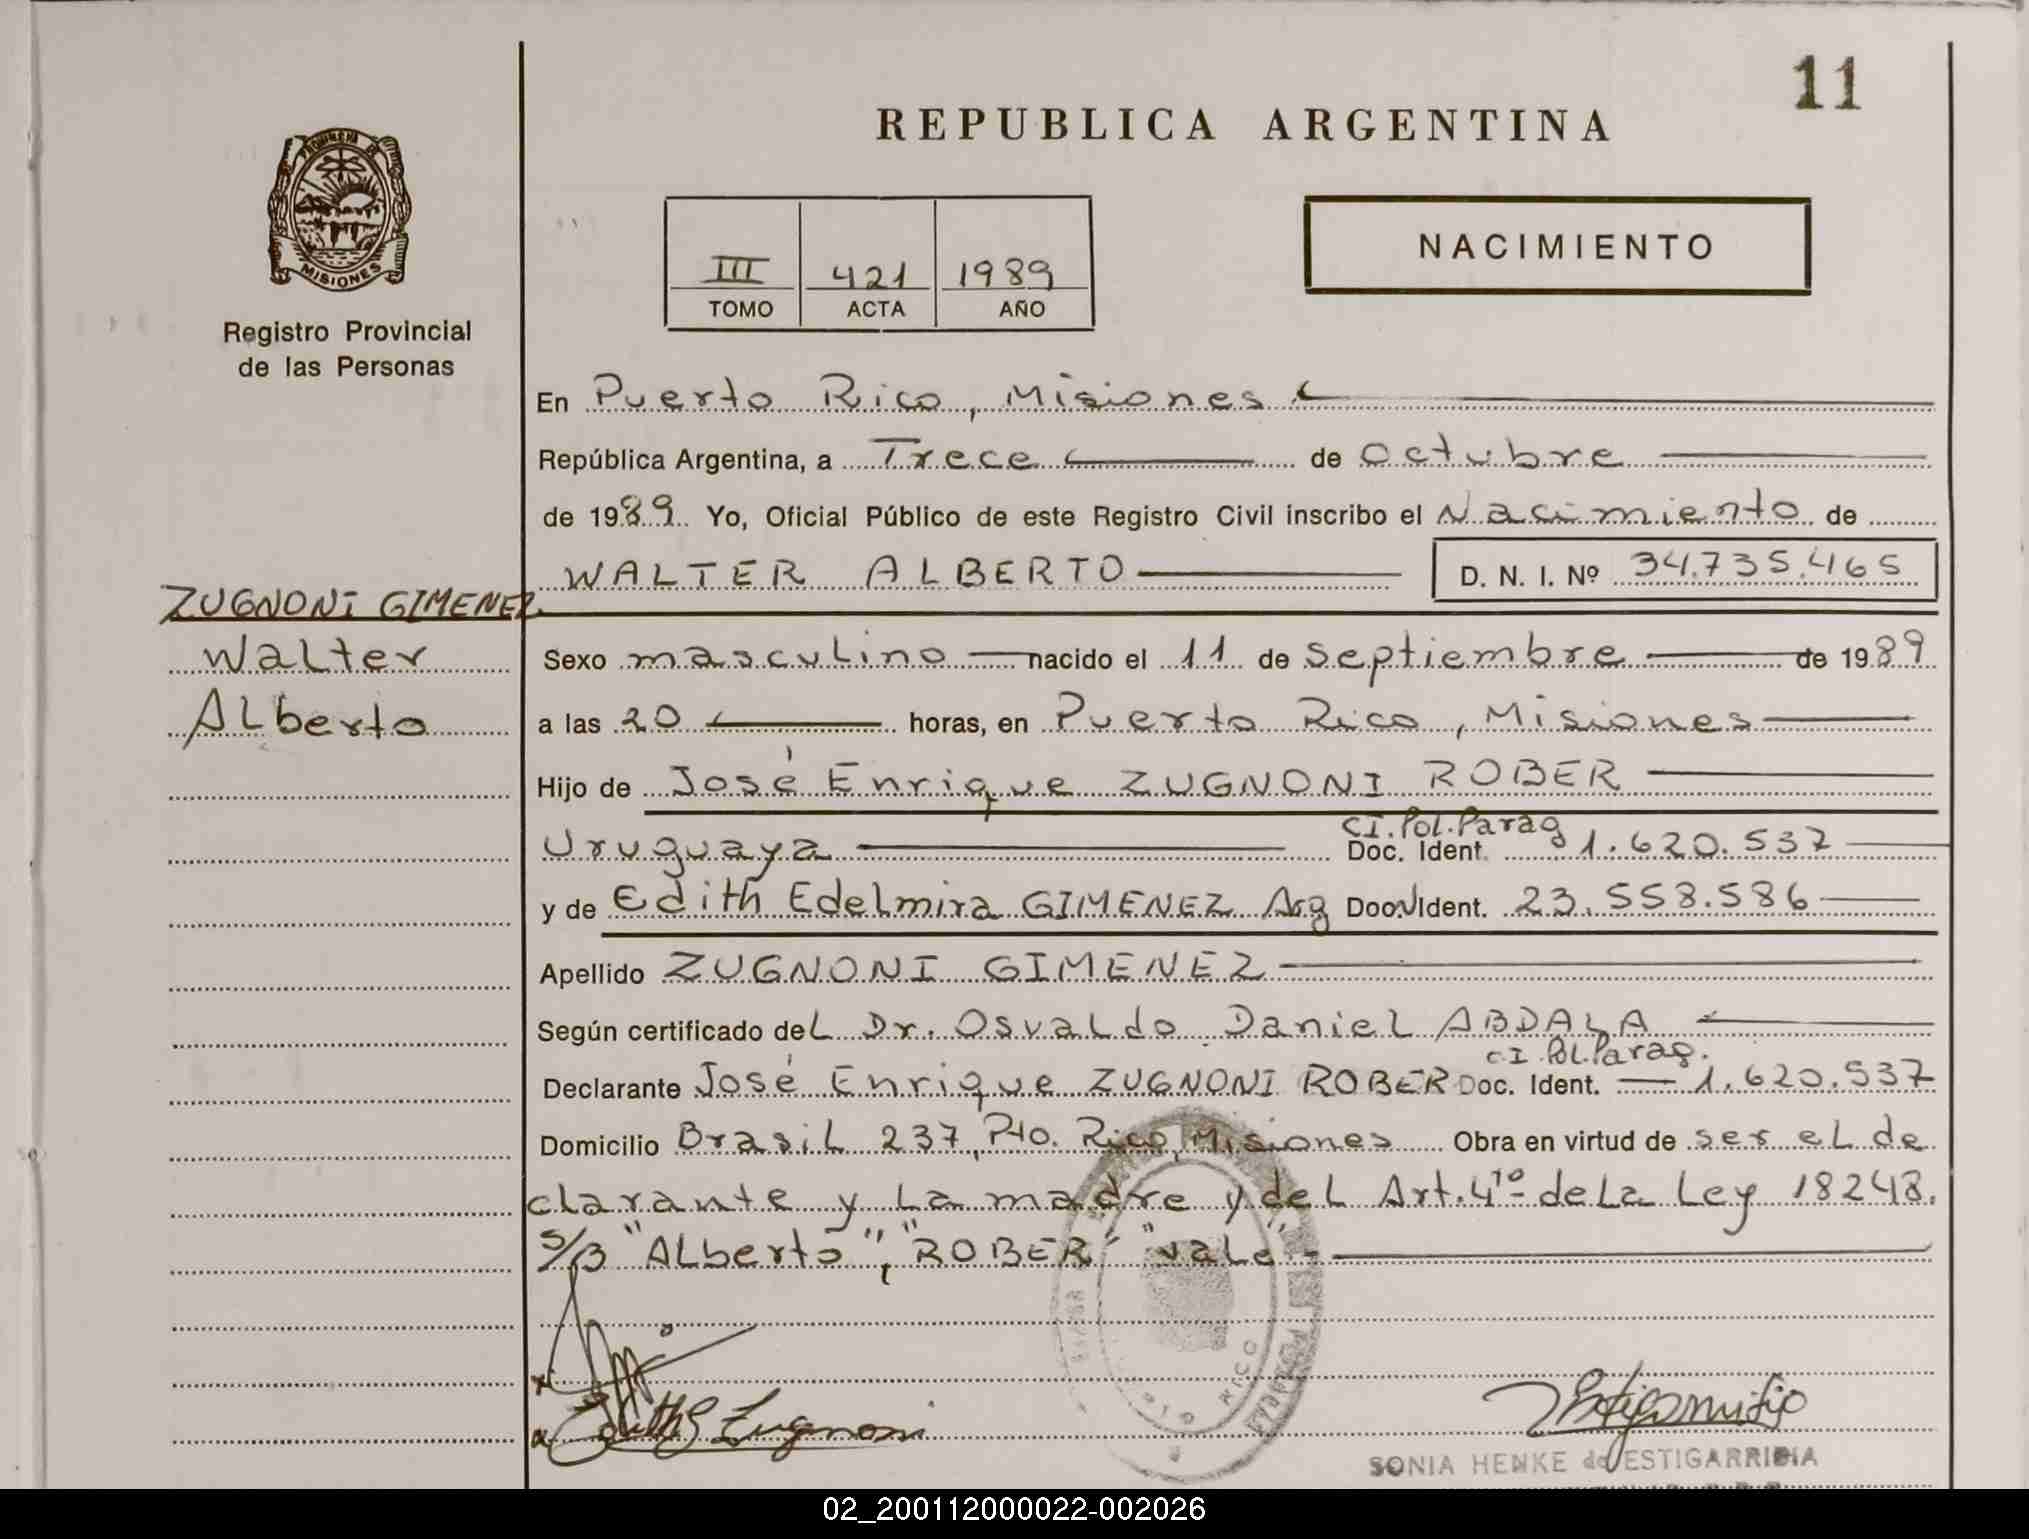 11
REPUBLICA ARGENTINA
PROVINCIA DE
MISIONES
Registro Provincial
de las Personas
III 421 1989
TOMO ACTA AÑO
NACIMIENTO
En Puerto Rico, Misiones
República Argentina, a Trece de Octubre
de 1989. Yo, Oficial Público de este Registro Civil inscribo el Nacimiento de
WALTER ALBERTO D. N. I. Nº 34.735.465
ZUGNONI GIMENEZ
Walter
Alberto
Sexo masculino nacido el 11 de septiembre de 1989
a las 20 horas, en Puerto Rico, Misiones
Hijo de José Enrique ZUGNONI ROBER
Uruguaya CI. Pol. Parag Doc. Ident. 1.620.537
y de Edith Edelmira GIMENEZ Arg Doc. Ident. 23.558.586
Apellido ZUGNONI GIMENEZ
Según certificado deL Dr. Osvaldo Daniel ABDALA
Declarante José Enrique ZUGNONI ROBER CI. Pol. Parag. Doc. Ident. 1.620.537
Domicilio Brasil 237, Pto. Rico, Misiones Obra en virtud de ser eL de
clarante y La madre y deL Art. 4º de La Ley 18248.
S/B "ALberto", "ROBER" "vale"
Edith G Zugnoni
RICO
SONIA HENKE de ESTIGARRIBIA
02_200112000022-002026